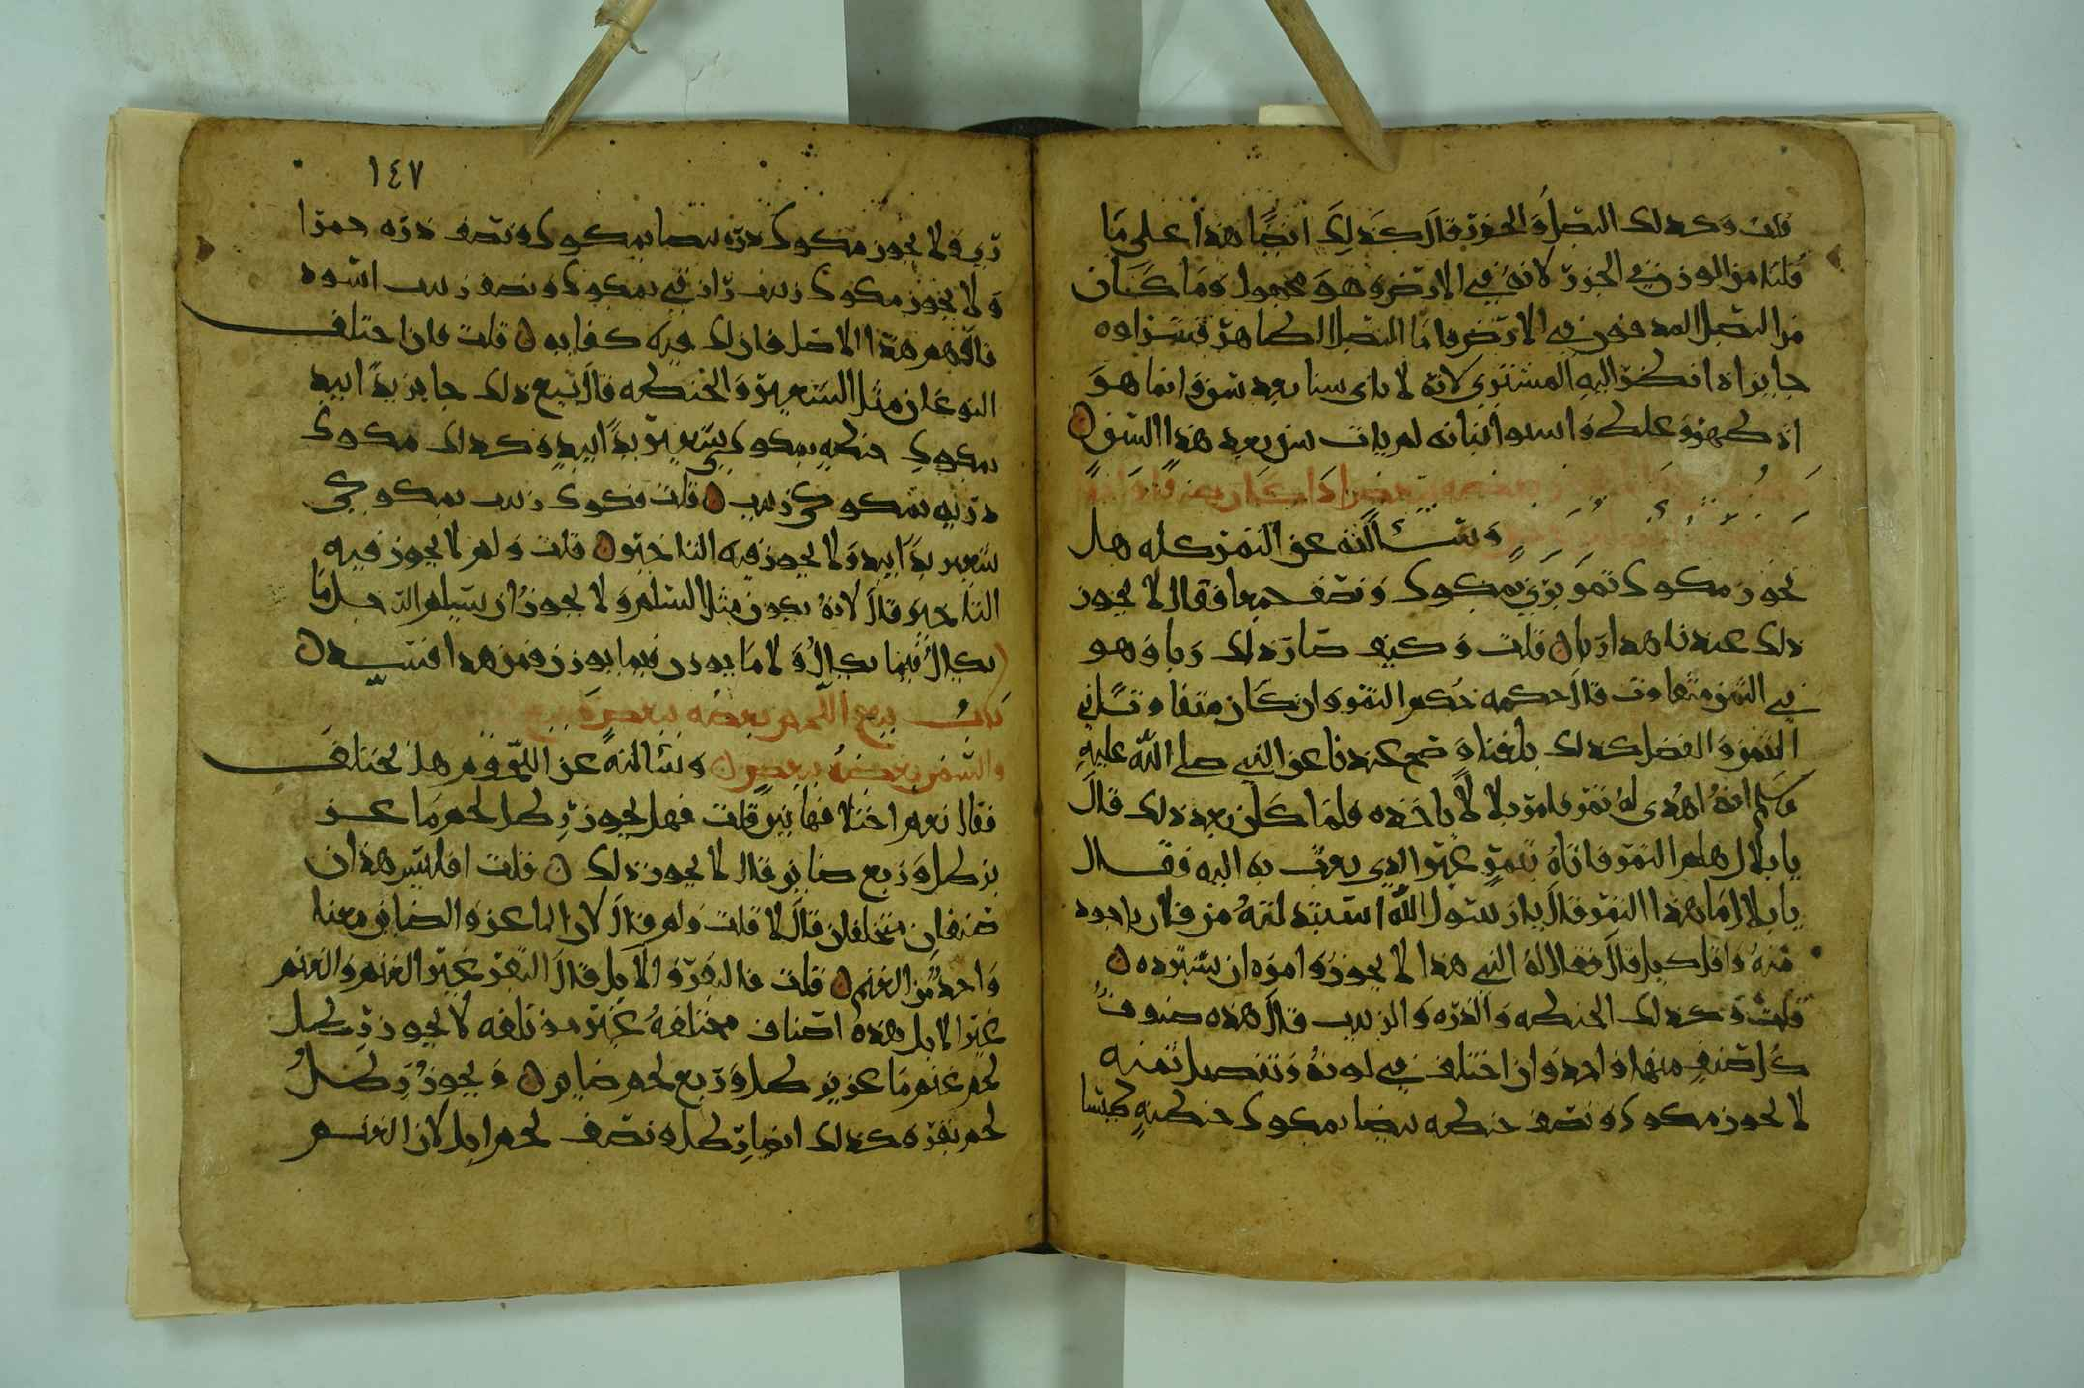 قلت وكذلك البصل والجزر قال كذلك ايضا هذا على ما
قلنا من الوزن في الجزر لانه في الارض وهو مجهول وما كان
من البصل المدفون في الارض فاما البصل الظاهر فشراوه
جايز اذا نظر اليه المشتري لانه لا ياتي شيا بعد شي وانما هو
اذ ظهر وعلظ واستوا نباته لم يات شي بعد هذا الشي
بعضه ببعض اذا كان يعرف
وسالته عن التمر كله هل
يجوز مكوك تمر برني بمكوك ونصف جميعا فقال لا يجوز
ذلك عندنا هذا ربا قلت وكيف صار ذلك ربا وهو
في الثمن متفاوت قال حكمه حكم التمر وان كان متفاوتا في
الثمن والفضل كذلك بلغنا وصح عندنا عن النبي صلى الله عليه
وسلم انه اهدي له تمر فامر بلالا ياخذه فلما كان بعد ذلك قال
يا بلال هلم التمر فاتاه بتمر غير الذي بعث به اليه فقال
يا بلال ما هذا التمر قال يا رسول الله استبدلته من فلان باجود
منه واقل كيلا قال فقال له النبي هذا لا يجوز وامره ان يسترده
قلت وكذلك الحنطه والذره والزبيب قال هذه صنوف
كل صنف منها واحد وان اختلف في لونه وتفصيل ثمنه
لا يجوز مكوك ونصف حنطه بيضا بمكوك حنطه
١٤٧
ولا يجوز مكوك ذره بيضا بمكوك ونصف ذره حمرا
ولا يجوز مكوك زبيب رازقي بمكوك ونصف زبيب اسود
فافهم هذا الاصل فان لك فيه كفايه قلت فان اختلف
النوعان مثل الشعير والحنطه قال بيع ذلك جايز يدا بيد
مكوك حنطه بمكوكي شعير يدا بيد وكذلك مكوك
ذره بمكوكي زبيب قلت فكوك زبيب بمكوكي
شعير يدا بيد ولا يجوز فيه التاخير قلت ولم لا يجوز فيه
التاخير قال لانه يكون مثل السلم ولا يجوز ان يسلم الرجل ما
يكال فيما يكال ولا ما يوزن فيما يوزن فمن هذا فسد
باب بيع اللحم بعضه ببعض وبيع
والسمن بعضه ببعض وسالته عن اللحوم هل تختلف
فقال نعم اختلافها بين قلت فهل يجوز رطل لحم ماعز
برطل وربع ضاين قال لا يجوز ذلك قلت افليس هذان
صنفان مختلفان قال لا قلت ولم قال لان الماعز والضاين معنا
واحد من الغنم قلت فالبقر والابل قال البقر غير الغنم والغنم
غير الابل هذه اصناف مختلفه غير موتلفه لا يجوز رطل
لحم غنم ماعزين رطل وربع لحم ضاين ويجوز رطل
لحم بقر وكذلك ايضا رطل ونصف لحم ابل لان الغنم